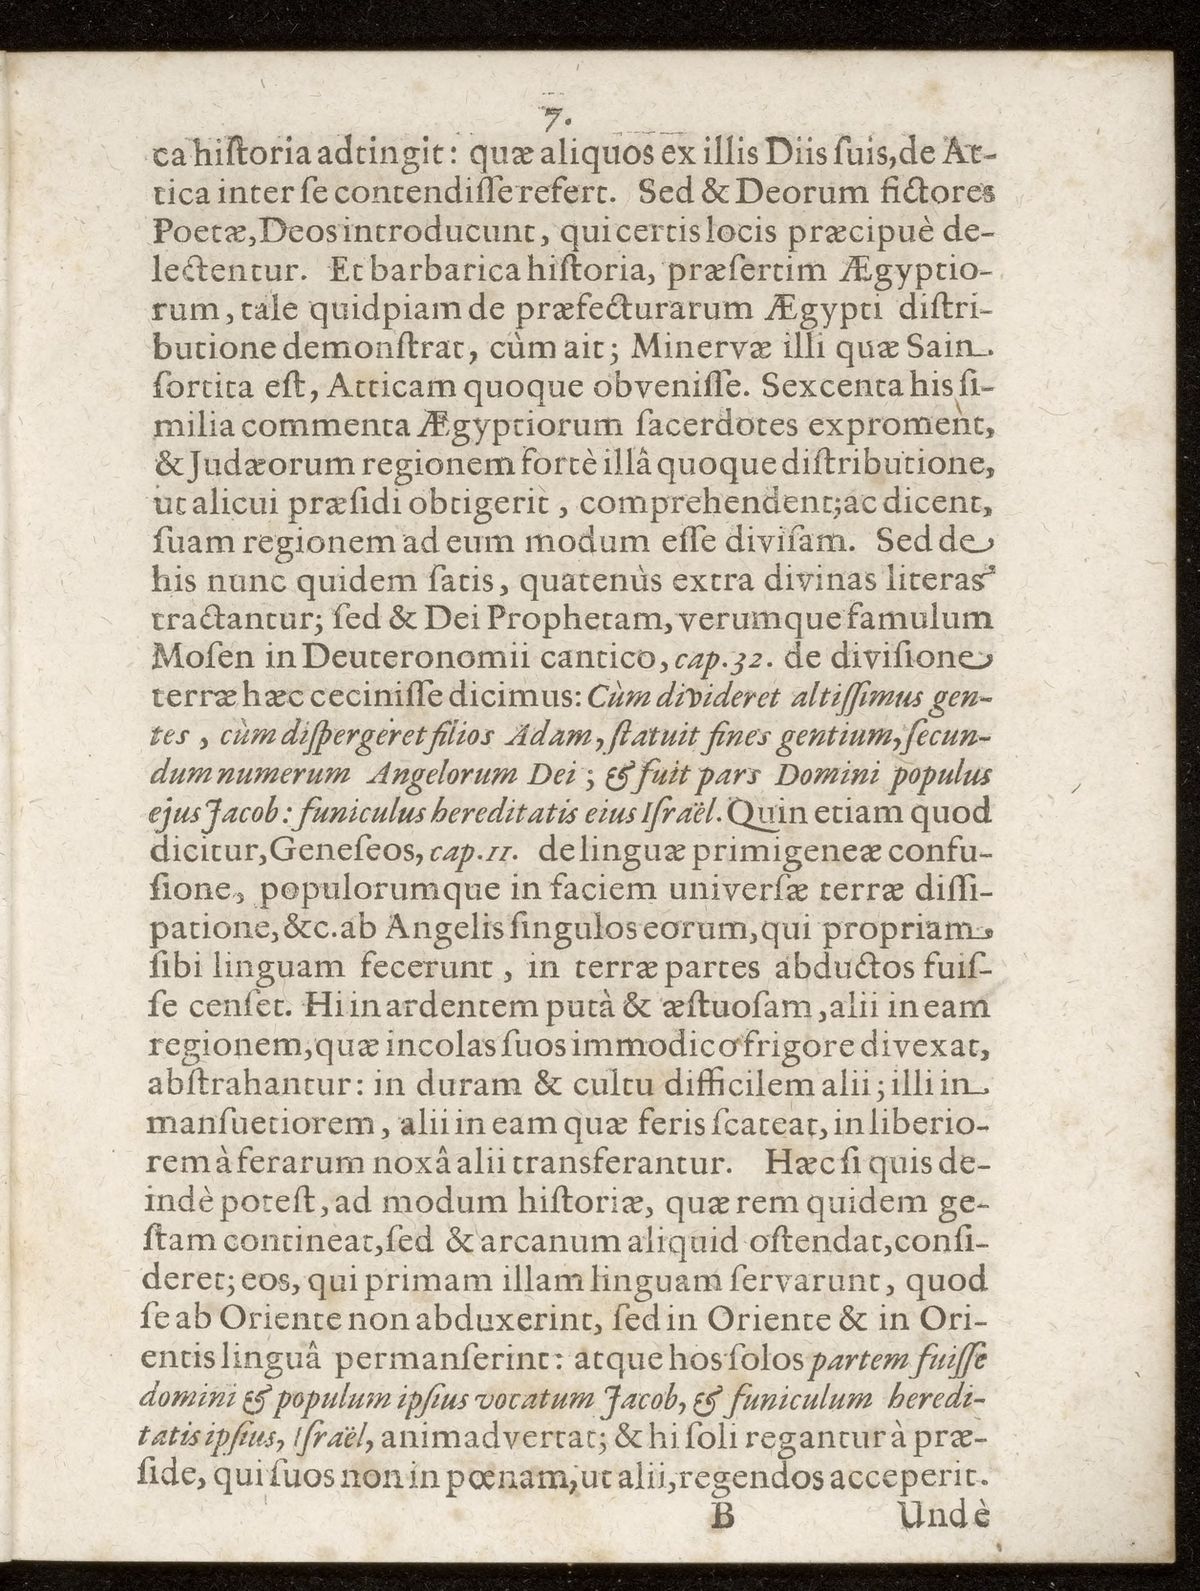 7.
ca hiſtoria adtingit: quæ aliquos ex illis Diis ſuis, de At-
tica inter ſe contendiſſe refert. Sed & Deorum fictores
Poetæ, Deos introducunt, qui certis locis præcipuè de-
lectentur. Et barbarica hiſtoria, præſertim Ægyptio-
rum, tale quidpiam de præfecturarum Ægypti diſtri-
butione demonſtrat, cùm ait; Minervæ illi quæ Sain
ſortita eſt, Atticam quoque obveniſſe. Sexcenta his ſi-
milia commenta Ægyptiorum ſacerdotes exproment,
& Judæorum regionem fortè illâ quoque diſtributione,
ut alicui præſidi obtigerit, comprehendent; ac dicent,
ſuam regionem ad eum modum eſſe diviſam. Sed de
his nunc quidem ſatis, quatenùs extra divinas literas
tractantur; ſed & Dei Prophetam, verumque famulum
Moſen in Deuteronomii cantico, cap. 32. de diviſione
terræ hæc ceciniſſe dicimus: Cùm divideret altiſſimus gen-
tes, cùm diſpergeret filios Adam, ſtatuit fines gentium, ſecun-
dum numerum Angelorum Dei; & fuit pars Domini populus
ejus Jacob: funiculus hereditatis eius Iſraël. Quin etiam quod
dicitur, Geneſeos, cap. 11. de linguæ primigeneæ confu-
ſione, populorumque in faciem univerſæ terræ diſſi-
patione, &c. ab Angelis ſingulos eorum, qui propriam
ſibi linguam fecerunt, in terræ partes abductos fuiſ-
ſe cenſet. Hi in ardentem putà & æſtuoſam, alii in eam
regionem, quæ incolas ſuos immodico frigore divexat,
abſtrahantur: in duram & cultu difficilem alii; illi in
manſuetiorem, alii in eam quæ feris ſcateat, in liberio-
rem à ferarum noxâ alii transferantur. Hæc ſi quis de-
indè poteſt, ad modum hiſtoriæ, quæ rem quidem ge-
ſtam contineat, ſed & arcanum aliquid oſtendat, conſi-
deret; eos, qui primam illam linguam ſervarunt, quod
ſe ab Oriente non abduxerint, ſed in Oriente & in Ori-
entis linguâ permanſerint: atque hos ſolos partem fuiſſe
domini & populum ipſius vocatum Jacob, & funiculum heredi-
tatis ipſius, Iſraël, animadvertat; & hi ſoli regantur à præ-
ſide, qui ſuos non in pœnam, ut alii, regendos acceperit.
B Undè